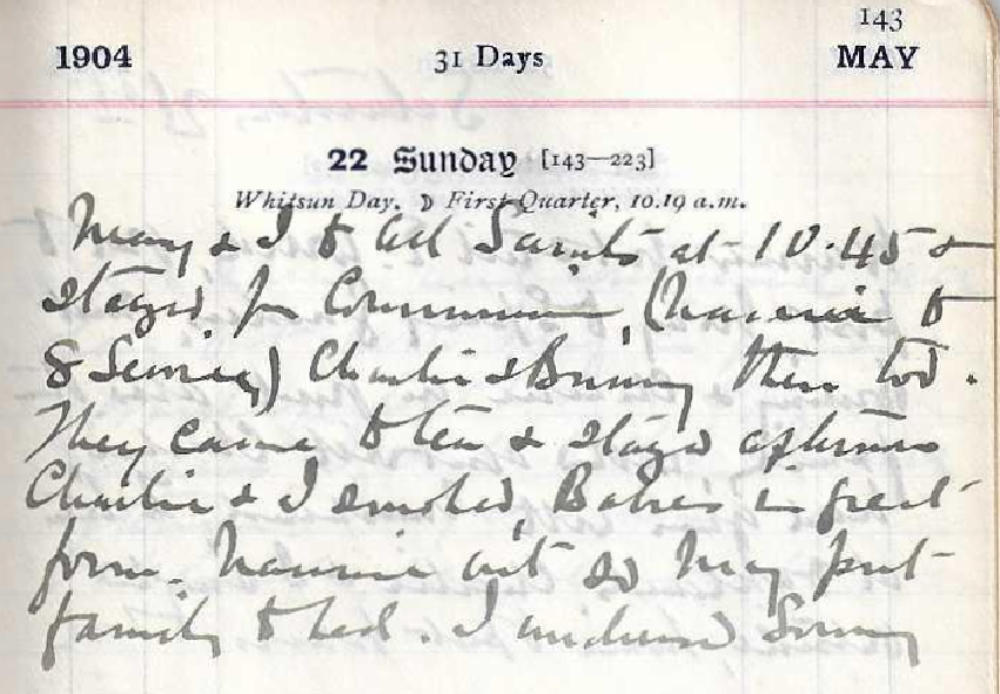 143
1904 31 Days MAY
22 Sunday [143—223]
Whitsun Day. ☽ First Quarter, 10.19 a.m.
May & I to All Saints at 10.45 &
stayed for Communion (Nannie to
8 Service) Charlie & Bunny there too.
They came to tea & stayed afternoon
Charlie & I smoked, Babies in great
form. Nannie out so May put
family to bed. I undressed Sonny